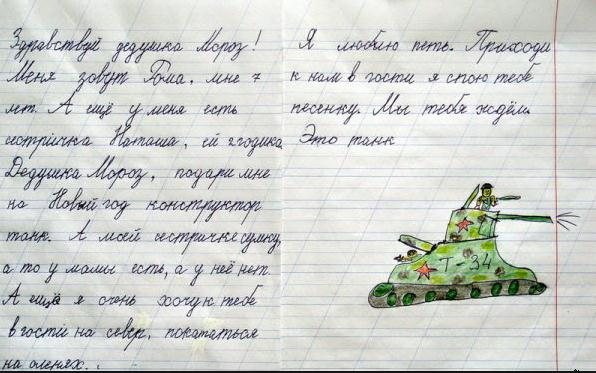 Здравствуй дедушка Мороз!
Меня зовут Рома, мне 7
лет. А ещё у меня есть
сестричка Наташа, ей 2 годика
Дедушка Мороз, подари мне
на Новый год конструктор
танк. А моей сестричке сумку,
а то у мамы есть, а у неё нет.
А ещё я очень хочу к тебе
в гости на север, покататься
на оленях.
Я люблю петь. Приходи
к нам в гости я спою тебе
песенку. Мы тебя ждём.
Это танк
Т 34